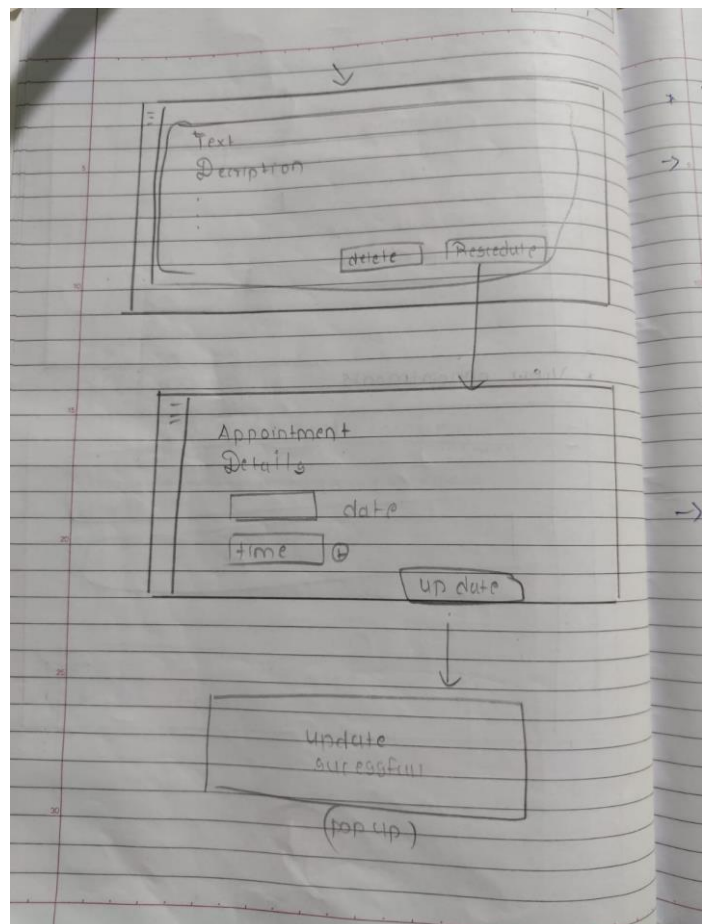 Text
Decription
delete
Rescedule
Appointment
Details
date
time
update
update
sucessfull
(pop up)